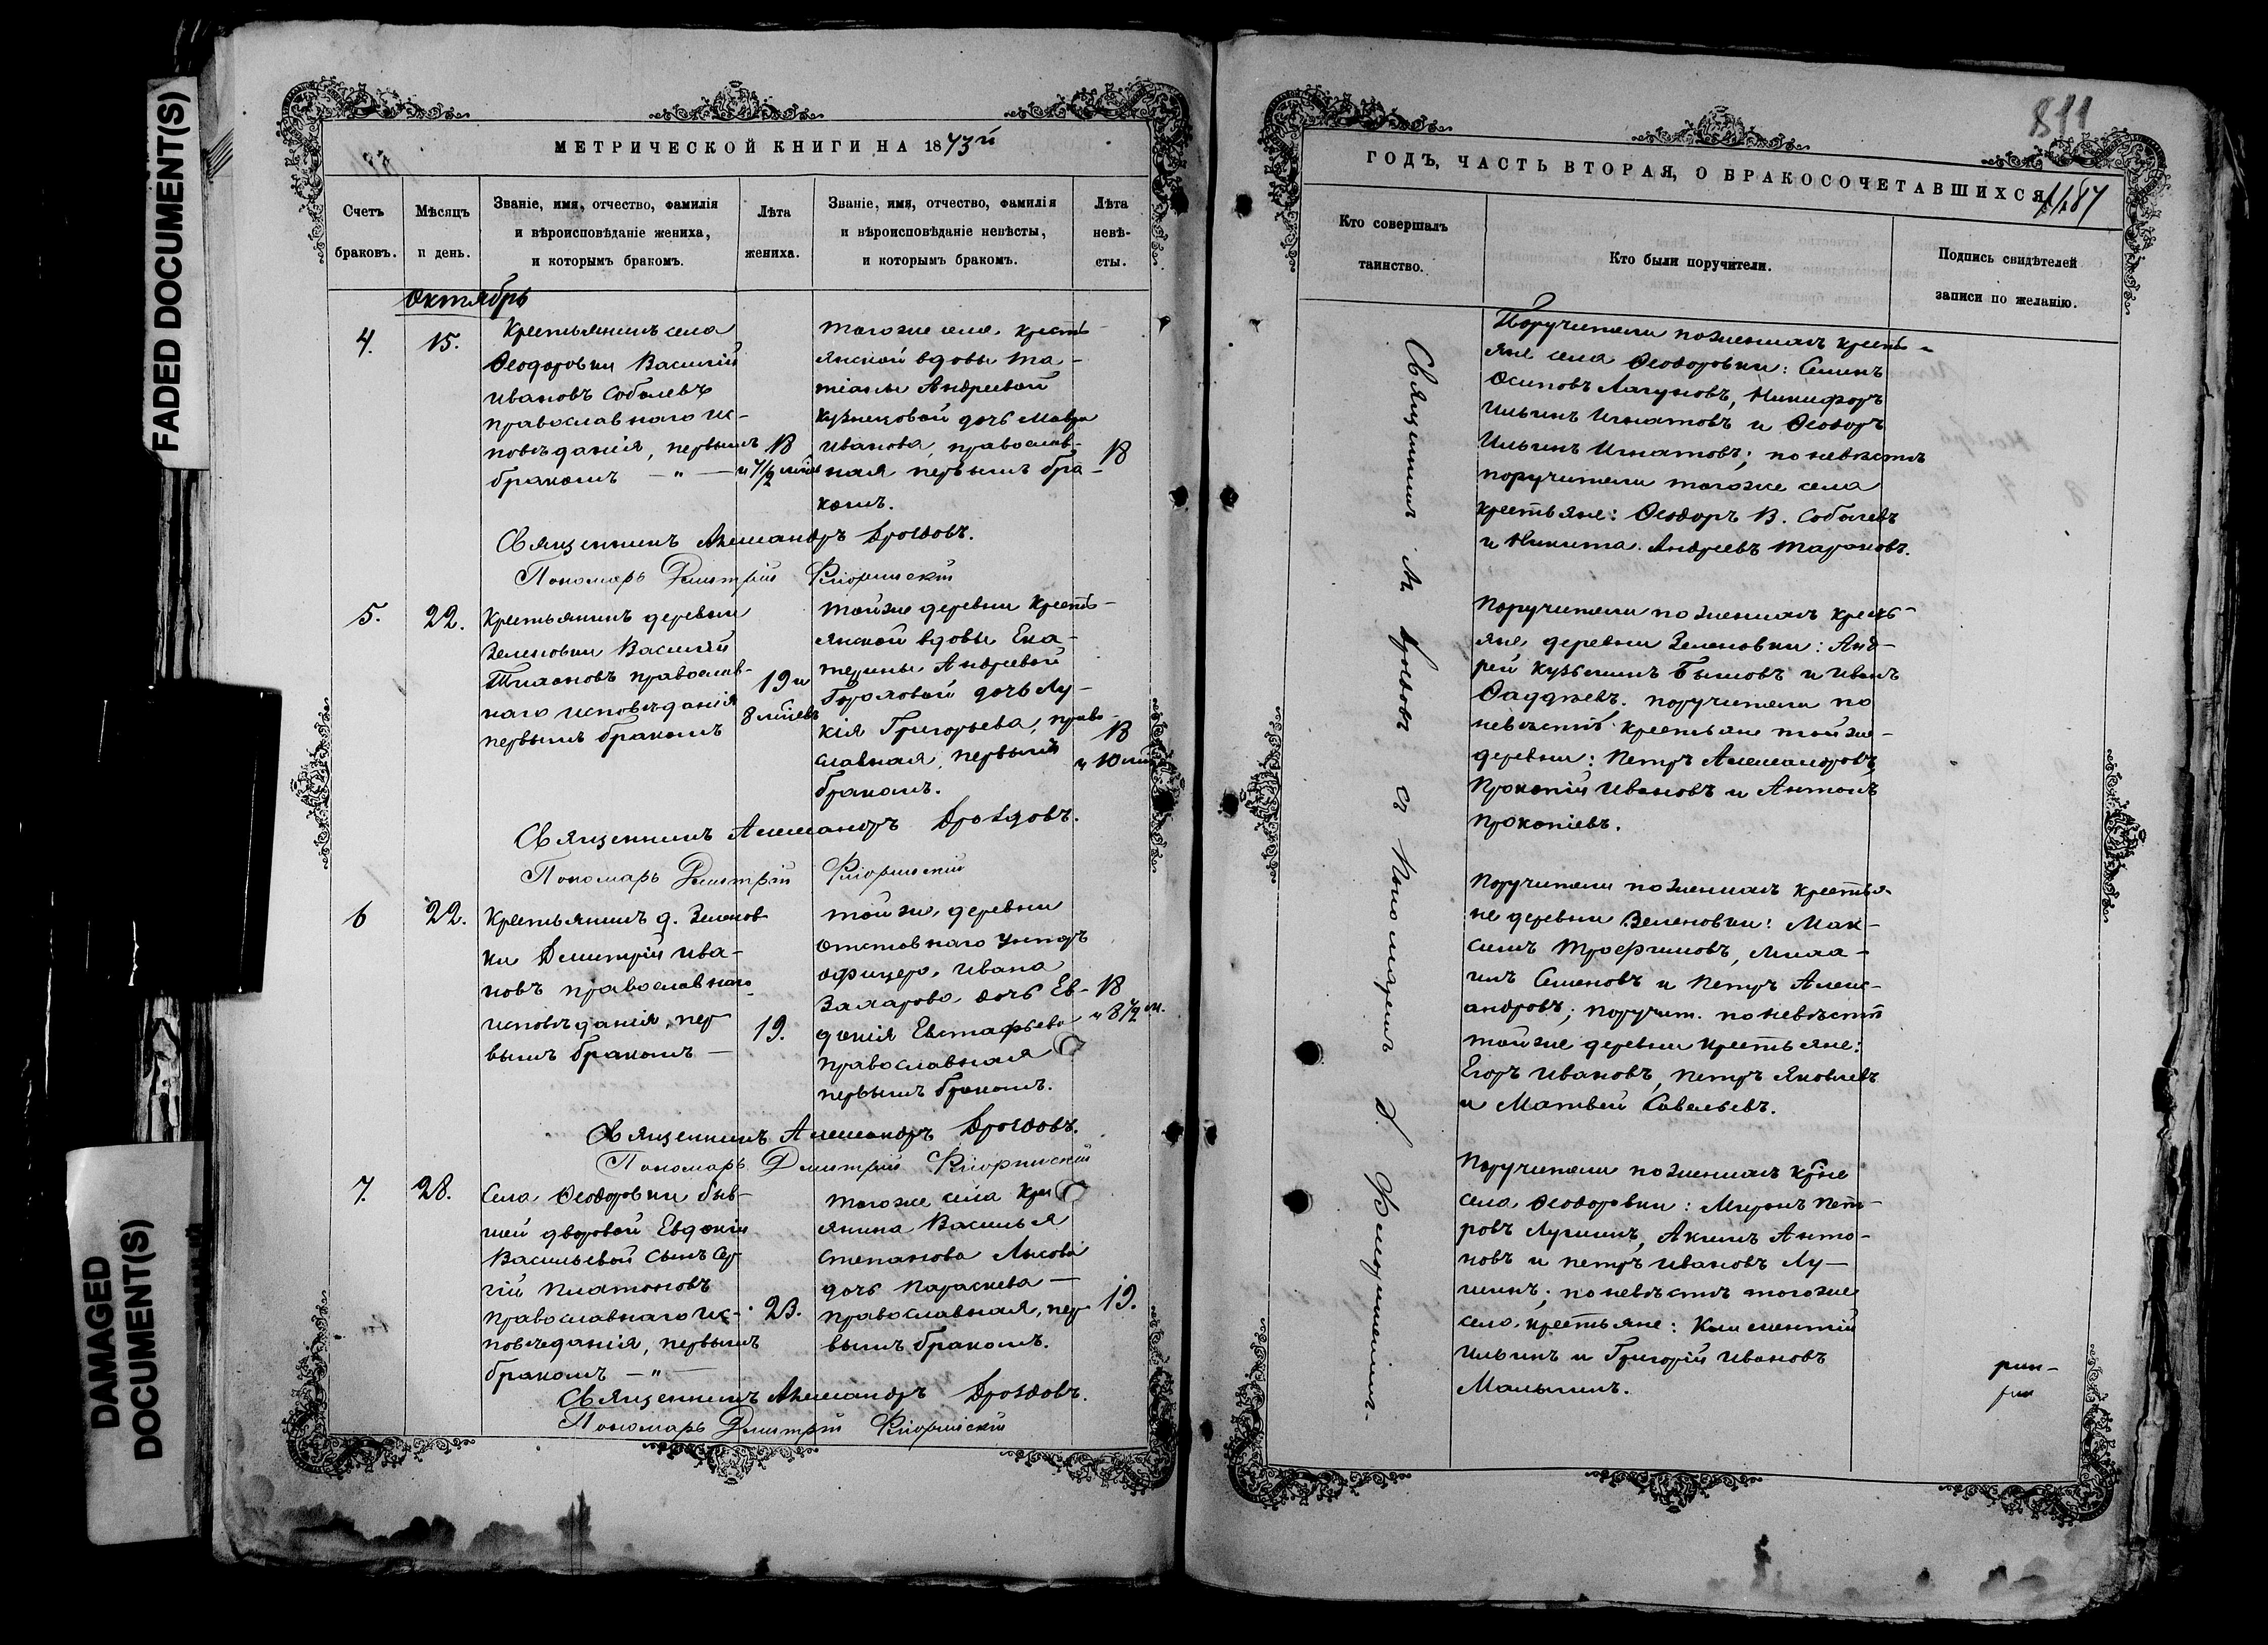 FADED DOCUMENT(S)
DAMAGED
DOCUMENT(S)
МЕТРИЧЕСКОЙ КНИГИ НА 1873й
Счетъ браковъ.
Мѣсяцъ и день.
Званіе, имя, отчество, фамилія и вѣроисповѣданіе жениха, и которымъ бракомъ.
Лѣта жениха.
Званіе, имя, отчество, фамилія и вѣроисповѣданіе невѣсты, и которымъ бракомъ.
Лѣта невѣ-
сты.
Октябрь
4.
15.
Крестьянинъ села
Ѳеодоровки Василій
Ивановъ Соболевъ
православнаго ис-
повѣданія, первымъ
бракомъ — " —
18
и 7½ мѣс
тогоже села крестъ-
янской вдовы Та-
тіаны Андреевой
Кузнецовой дочь Мавра
Иванова, православ-
ная первымъ бра-
комъ.
18
Священникъ Александръ Дроздовъ.
Пономарь Дмитрій
5.
22.
Крестьянинъ деревни
Зеленовки Василій
Тихоновъ православ-
наго исповѣданія
первымъ бракомъ
19 и
8 мѣсвъ
тойже деревни крестъ-
янской вдовы Ека-
терины Андреевой
дочь Лу-
кія Григорьева, право-
славная, первымъ
бракомъ.
18
и 10
Священникъ Александръ Дроздовъ.
Пономарь Дмитрій
6
22.
Крестьянинъ д. Зеленов-
ки Дмитрій Ива-
новъ православнаго
исповѣданія, пер
вымъ бракомъ —
19.
тойже деревни
отставнаго унтеръ
офицера Ивана
Захарова дочь Ев-
докія Евстафьева
православная
первымъ бракомъ.
18
и 8½ м.
Священникъ Александръ Дроздовъ.
Пономарь Дмитрій
7.
28.
Села Ѳеодоровки быв-
шей дворовой Евдокіи
Васильевой сынъ Сер
гій Платоновъ
православнаго ис-
повѣданія, первымъ
бракомъ — " —
23.
тогоже села кре
янина Василья
Степанова Лысова
дочь Параскева —
православная, пер
вымъ бракомъ.
19.
Священникъ Александръ Дроздовъ.
Пономарь Дмитрій
811
ГОДЪ, ЧАСТЬ ВТОРАЯ, О БРАКОСОЧЕТАВШИХСЯ.
Кто совершалъ таинство.
Кто были поручители.
Подпись свидѣтелей записи по желанію.
Священникъ А. Дроздовъ съ Пономаремъ Д.
Поручители по женихѣ крестъ-
яне села Ѳеодоровки: Семенъ
Осиповъ Лагуновъ, Никифоръ
Ильинъ Игнатовъ и Ѳеодоръ
Ильинъ Игнатовъ; по невѣстѣ
поручители тогоже села
крестьяне: Ѳеодоръ В. Соболевъ
и Никита Андреевъ Тараковъ.
Поручители по женихѣ кресть-
яне деревни Зеленовки: Анд-
рей Кузьминъ и Иванъ
Ѳаддѣевъ. поручители по
невѣстѣ крестьяне тойже
деревни: Петръ Александровъ,
Прокопій Ивановъ и Антонъ
Прокопіевъ.
Поручители по женихѣ крестья-
не деревни Зеленовки: Мак-
симъ Трофимовъ, Миха-
илъ Семеновъ и Петръ Алек-
андровъ; поручит. по невѣстѣ
тойже деревни крестьяне:
Егоръ Ивановъ, Петръ Яковлевъ
и Матвей Савельевъ.
Поручители по женихѣ кр҃не
села Ѳеодоровки: Миронъ Пет-
ровъ Лушинъ, Акимъ Анто-
новъ и Петръ Ивановъ Лу-
шинъ; по невѣстѣ тогоже
села крестьяне: Климентій
Ильинъ и Григорій Ивановъ
Малышинъ.